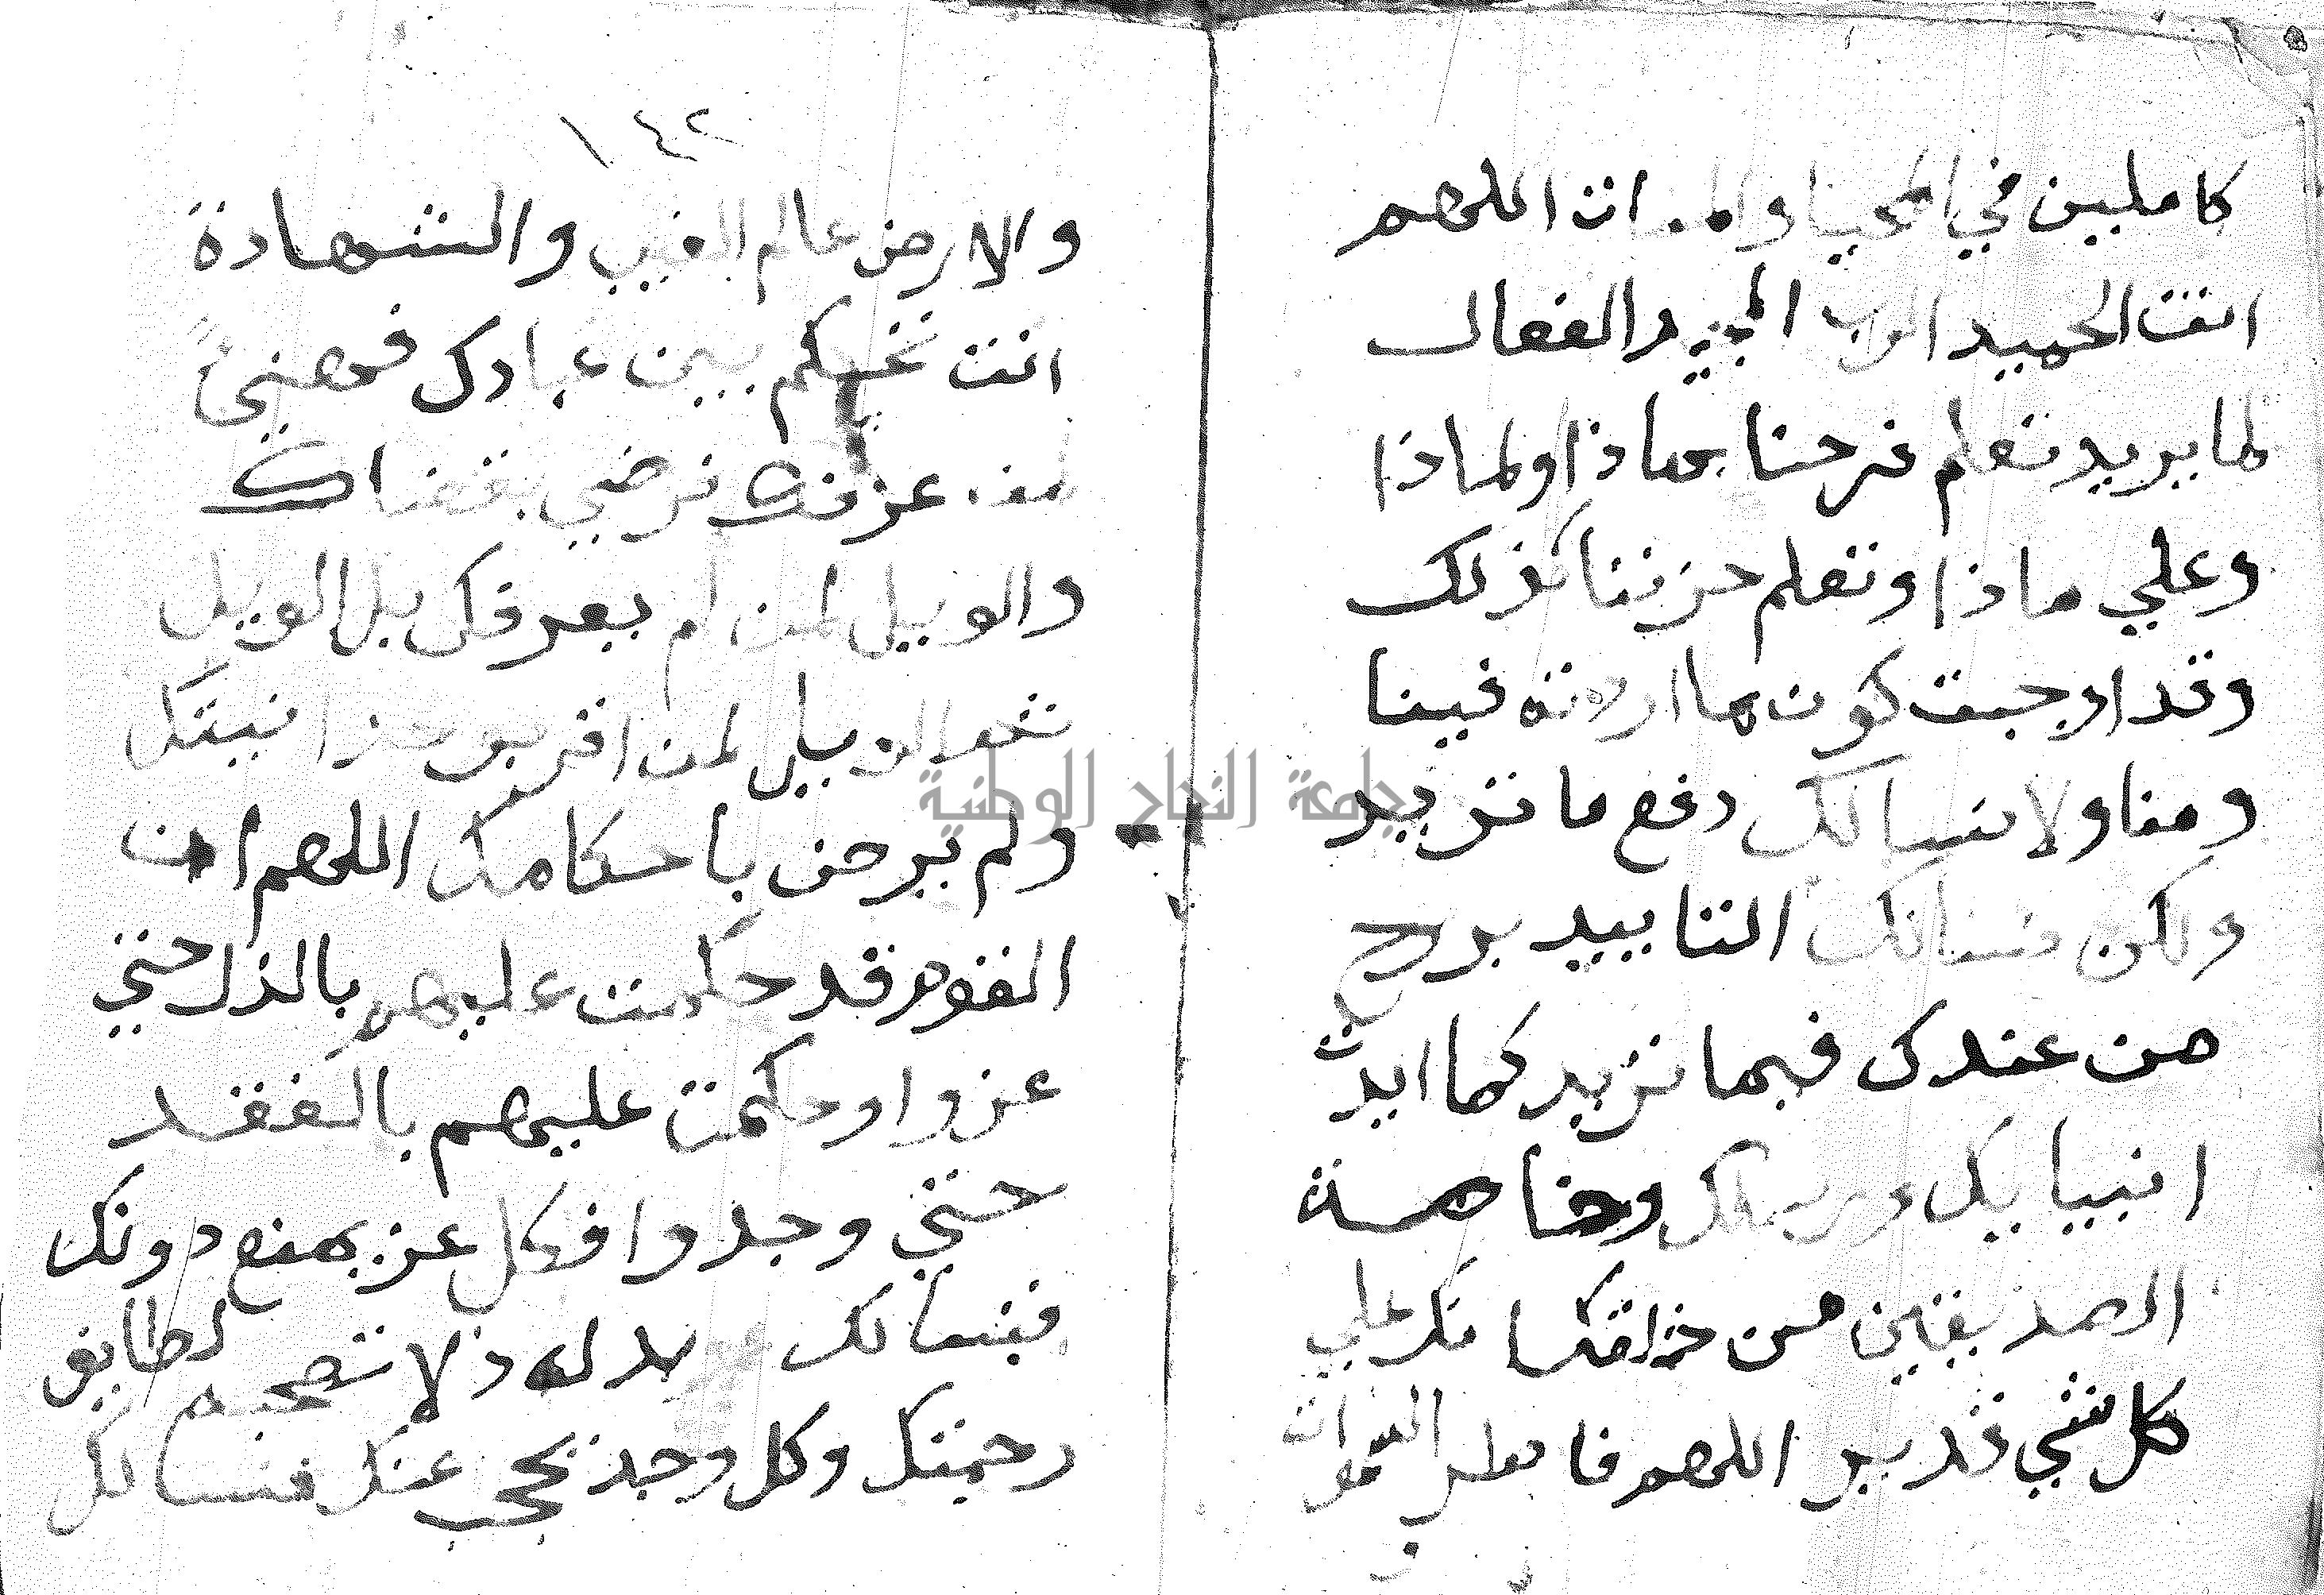 كاملين في المحيا والممات اللهم
انت الحميد الرب المجيد الفعال
لما يريد تعلم فرحنا بماذا ولماذا
وعلي ماذا وتعلم حزننا كذلك
وقد اوجبت كون ما اردته فينا
ومنا ولا نسالك دفع ما تريد
ولكن نسالك التاييد بروح
من عندك فيما تريد كما ايدت
انبيايك ورسلك وخاصة
الصديقين من خلقك انك علي
كل شي قدير اللهم فاطر السموات
١٤٢
والارض عالم الغيب والشهادة
انت تحكم بين عبادك فهنيئاً
لمن عرفك فرضي بقضاك
والويل لمن لم يعرفك بل الويل
ثم الويل لمن اقر بوحدانيتك
ولم يرض باحكامك اللهم ان
القوم قد حكمت عليهم بالذل حتي
عزوا وحكمت عليهم بالفقد
حتي وجدوا فكل عز يمنع دونك
فنسالك بدله ذلا تصحبه لطايف
رحمتك وكل وجد يحجب عنك فنسالك
جامعة النجاح الوطنية